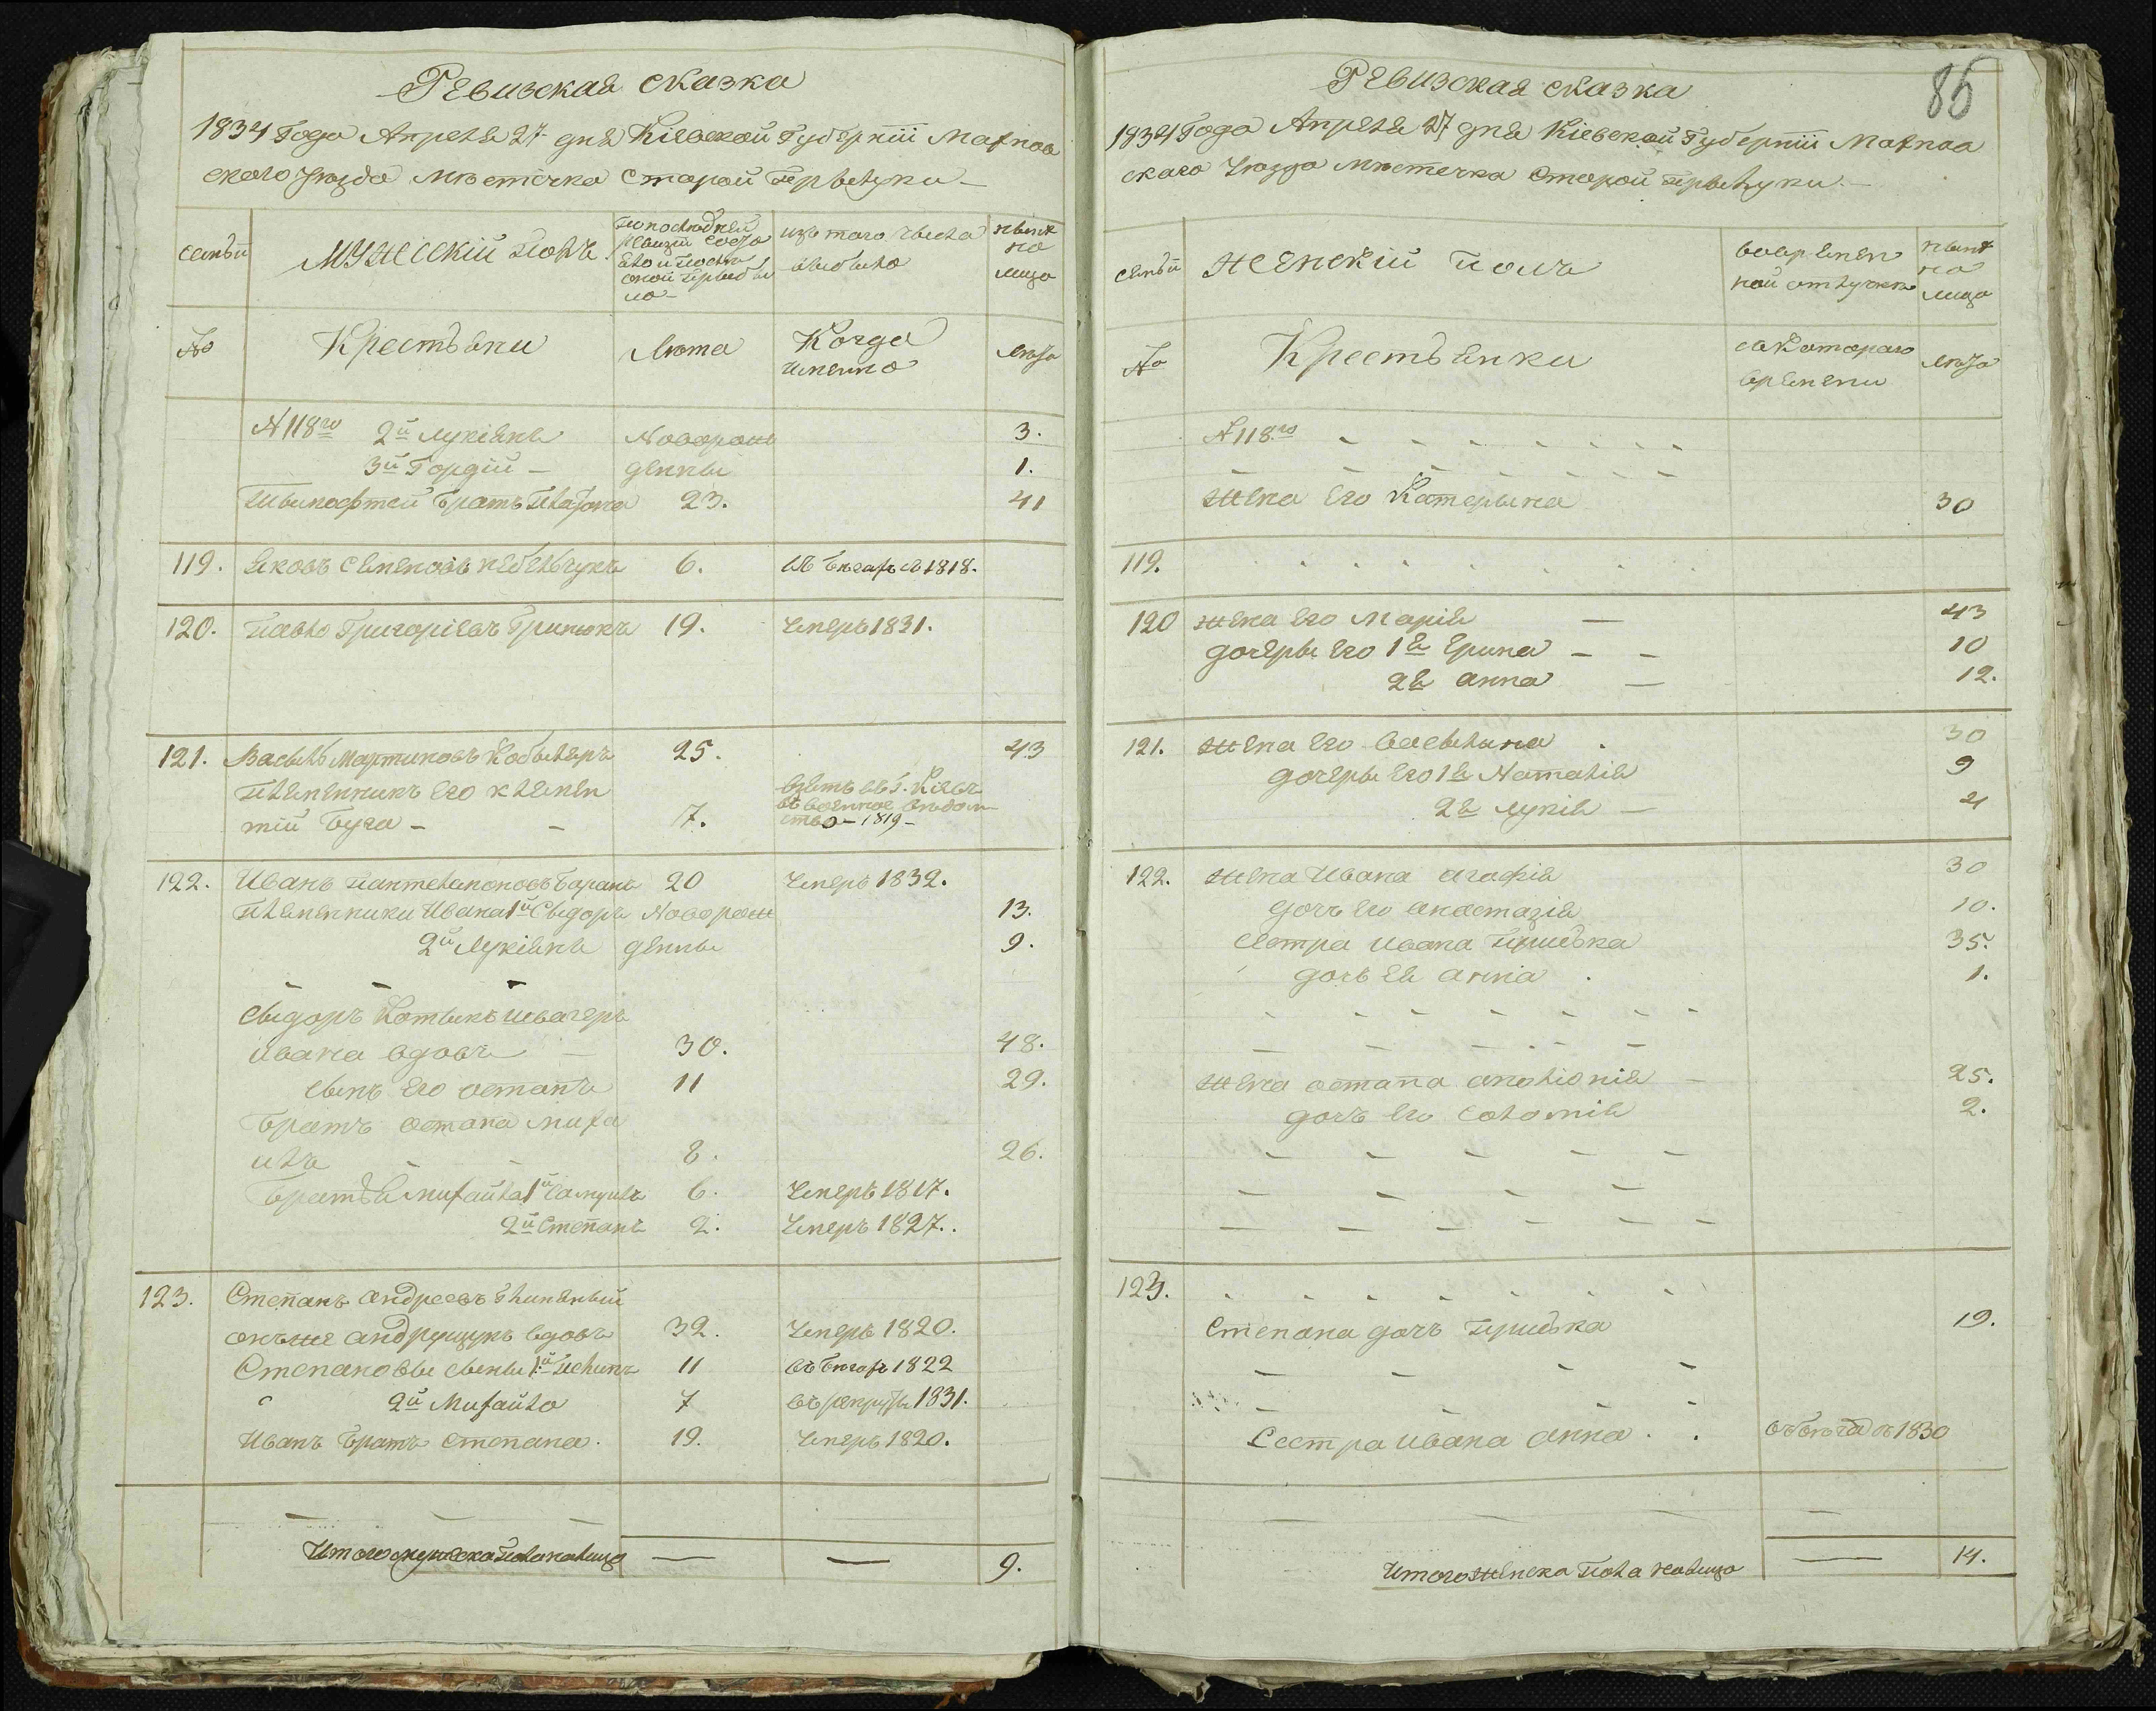 Ревизская сказка
1834 Года Апреля 27 дня Кіевской Губерніи Махнов
ского Уѣзда мѣстечка Старой Прылуки
семьи
мужескій полъ
по последней ревизіи состо яло и после оной прыбы ло
изъ того числа выбыло
ныне на лицо
№
Крестьяни
Лѣта
Когда именно
лѣта
N 118го 2й Лукіянъ Новорож 3.
3й Гордій – денны 1.
Тимофтей братъ Платона 23. 41
119. Яковъ Семеновъ 6. въ бѣгахъ съ 1818.
120. Павло Григоріевъ Грипюкъ 19. Умеръ 1831.
121. Василь Мартиновъ Кобыляръ 25. 43
племенникъ его Клемен
тій Буга – – 7. взятъ въ Г. Кіевъ въ военное ведом ство – 1819 –
122. Иванъ Пантелимоновъ Баранъ 20 Умеръ 1832.
племенники Ивана 1й Сыдоръ Новорож 13.
2й Лукіянъ денны 9.
Сыдоръ Котыкъ швагеръ
Ивана вдовъ – 30. 48.
сынъ его Остапъ 11 29.
братъ Остапа Миха
илъ 8. 26.
братья Михайла 1й Самуилъ 6. Умеръ 1817.
2й Степанъ 2. Умеръ 1827.
123. Степанъ Андреевъ Глиняный
онъ же Андрущукъ вдовъ 32. Умеръ 1820.
Степановы сыны 1й 11 въ бѣгахъ 1822
2й Михайло 7 въ рекруты 1831.
Иванъ братъ Степана. 19. Умеръ 1820.
Итого мужеска пола на лицо — — 9.
85
Ревизская сказка
1834 Года Апреля 27 дня Кіевской Губерніи Махнов
ского Уѣзда мѣстечка Старой Прылуки.
семьи
женскій полъ
во времен ной отлучке
ныне на лицо
№
Крестьянки
съ Котораго времени
лѣта
N 118го
жена его Катерына 30
119.
120 жена его Марія — 43
дочеры его 1я Ерина – – 10
2я Анна — 12.
121. жена его Васылина 30
дочеры его 1я Наталія 9
2я Лукія — 4
122. жена Ивана Агафія 30
дочъ его Анастазія 10.
Сестра Ивана Приська 35.
дочъ ея Анна 1.
жена Остапа 25.
дочъ его Соломія 2.
123.
Степана дочъ Приська 19.
Сестра Ивана Анна . . въ бѣгахъ 1830
Итого женска пола на лицо — 14.